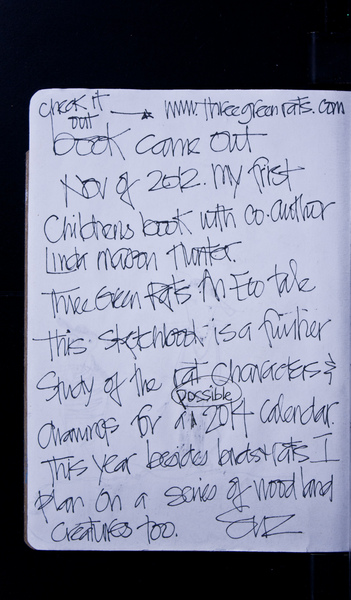 check it out → www.threegreenrats.com
book came out
Nov of 2012. my first
Childrens book with co.author
Linda mason Hunter.
Three Green Rats An Eco tale
This sketchbook is a further
Study of the rat characters &
possible
drawings for a 2014 calendar.
This year besides birds & rats I
plan on a series of woodland
creatures too.